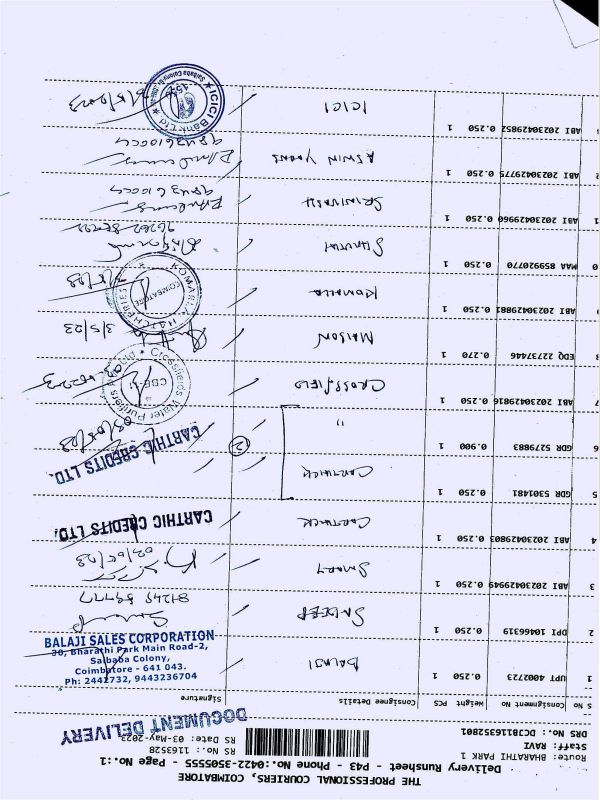 THE PROFESSIONAL COURIERS, COIMBATORE
Delivery Runsheet - P43 - Phone No.:0422-3505555 - Page No.:1
Route: BHARATHI PARK 1
Staff: RAVI
DRS No.: DC1781163528O1
RS No.: 1163528
RS Date: 03-May-2023
DOCUMENT DELIVERY
S No Consignment No Weight PCS Consignee Details Signature
1 UPT 4002723 0.250 1 BALAJI
BALAJI SALES CORPORATION
30, Bharathi Park Main Road-2,
Saibaba Colony,
Coimbatore - 641 043.
Ph: 2442732, 9443236704
2 DPI 10466319 0.250 1 SADEEP
81249 59777
3 ABI 20230429949 0.250 1 SMART
03/05/23
4 ABI 2023042980 0.250 1 CARTHICK
CARTHIC CREDITS LTD.
5 GDR 5301481 0.250 1 CARTHICK
6 GDR 5279883 0.900 1 "
2
CARTHIC CREDITS LTD.
03/05/23
7 ABI 2023042981 0.250 1 CROSSFIELD
Crossfields Water Purifiers Pvt Ltd
CBE-11
EDQ 22737446 0.270 1 MAISON
3/5/23
ABI 202304298 0.250 1 KOMALA
KOMARLA HATCHERIES
COIMBATORE
0 MAA 859920770 0.250 1 SHRUTHI
1 ABI 2023042996 0.250 1 SRINIVASH
9843610004
2 ABI 2023042977 0.250 1 ASWIN YOONS
9843610004
ABI 2023042985 0.250 1 ICICI
ICICI Bank Ltd